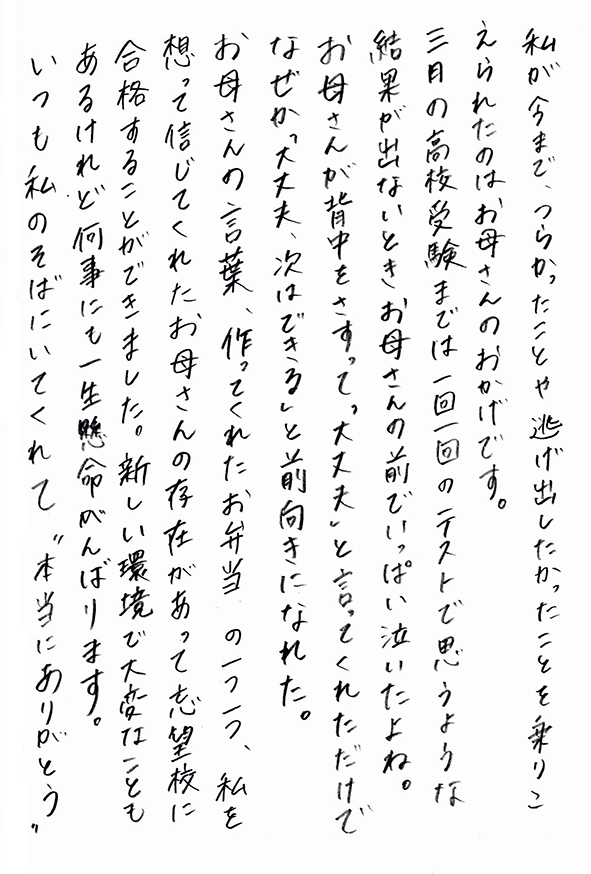 私が今まで、つらかったことや逃げ出したかったことを乗りこ
えられたのはお母さんのおかげです。
三月の高校受験までは一回一回のテストで思うような
結果が出ないときお母さんの前でいっぱい泣いたよね。
お母さんが背中をさすって「大丈夫」と言ってくれただけで
なぜか「大丈夫、次はできる」と前向きになれた。
お母さんの言葉、作ってくれたお弁当の一つ一つ、私を
想って信じてくれたお母さんの存在があって志望校に
合格することができました。新しい環境で大変なことも
あるけれど何事にも一生懸命がんばります。
いつも私のそばにいてくれて〝本当にありがとう〟